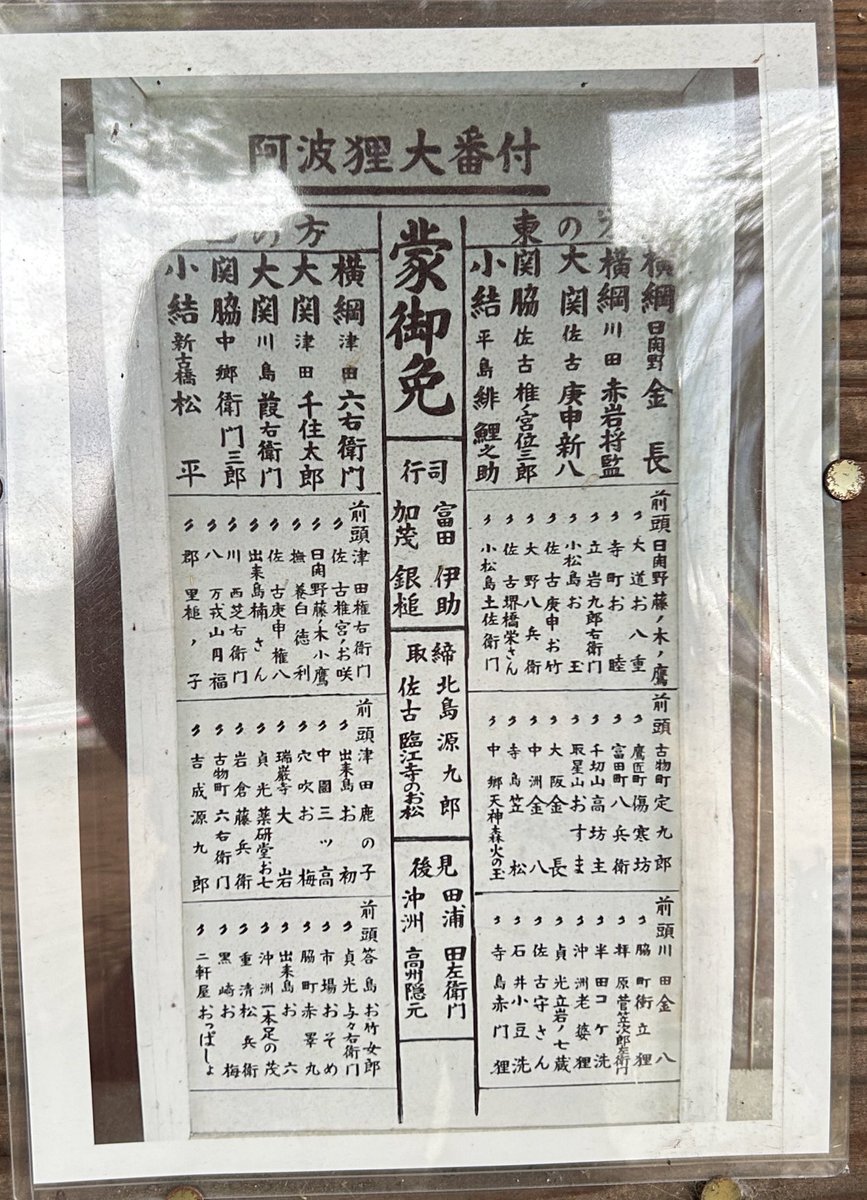 阿波狸大番付
東の
横綱 日開野 金長
横綱 川田 赤岩将監
大関 佐古 庚申新八
関脇 佐古 椎ノ宮位三郎
小結 平島 緋鯉之助
前頭 日開野 藤ノ木ノ鷹
〃 大道お八重
〃 寺町お睦
〃 立岩九郎右衛門
〃 小松島お玉
〃 佐古庚申お竹
〃 大野八兵衛
〃 佐古堺橋栄さん
〃 小松島土佐衛門
前頭 古物町定九郎
〃 鷹匠町傷寒坊
〃 富田町八兵衛
〃 千切山高坊主
〃 取星山おすま
〃 大阪金長
〃 中洲金八
〃 寺島笠松
〃 中郷天神森火の玉
前頭 川田金八
〃 脇町衝立狸
〃 拝原菅笠次郎左衛門
〃 半田コケ洗
〃 沖洲老婆狸
〃 貞光立岩ノ七蔵
〃 佐古守さん
〃 石井小豆洗
〃 寺島赤門狸
蒙御免
行司
富田 伊助
加茂 銀槌
取締
北島 源九郎
佐古 臨江寺のお松
後見
田浦 田左衛門
沖洲 高州隠元
の方
横綱 津田 六右衛門
大関 津田 千住太郎
大関 川島 葭右衛門
関脇 中郷 衛門三郎
小結 新古橋 松平
前頭 津田権右衛門
〃 佐古椎宮ノお咲
〃 日開野藤ノ木小鷹
〃 撫養白徳利
〃 佐古庚申権八
〃 出来島楠さん
〃 川西芝右衛門
〃 八万戎山円福
〃 郡里槌ノ子
前頭 津田鹿の子
〃 出来島お初
〃 中園三ッ高
〃 穴吹お梅
〃 瑞巌寺大岩
〃 貞光薬研堂お七
〃 岩倉藤兵衛
〃 古物町六右衛門
〃 吉成源九郎
前頭 答島お竹女郎
〃 貞光与々右衛門
〃 市場おそめ
〃 脇町赤睪丸
〃 出来島お六
〃 沖洲一本足の茂
〃 重清松兵衛
〃 黒崎お梅
〃 二軒屋おっぱしょ